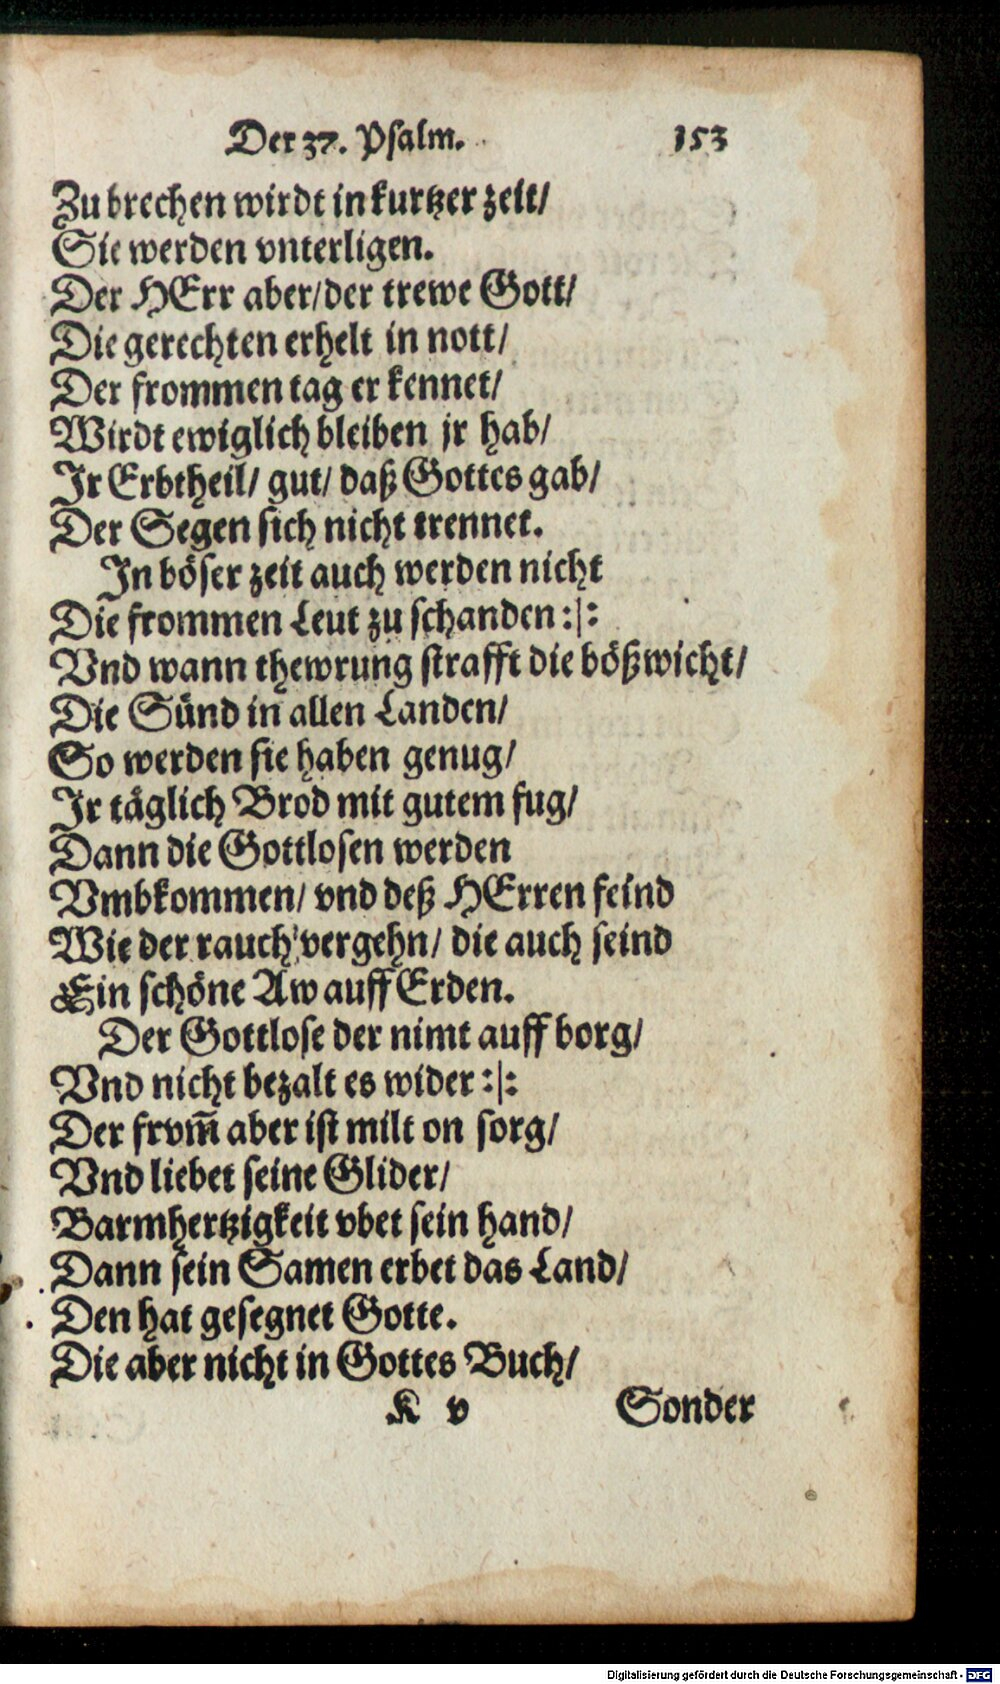 Der 37. Psalm. 153
Zu brechen wirdt in kurtzer zeit/
Sie werden vnterligen.
Der HErr aber/der trewe Gott/
Die gerechten erhelt in nott/
Der frommen tag er kennet/
Wirdt ewiglich bleiben jr hab/
Ir Erbtheil/ gut/ daß Gottes gab/
Der Segen sich nicht trennet.
In böser zeit auch werden nicht
Die frommen Leut zu schanden :|:
Vnd wann thewrung strafft die bößwicht/
Die Sünd in allen Landen/
So werden sie haben genug/
Ir täglich Brod mit gutem fug/
Dann die Gottlosen werden
Vmbkommen/ vnd deß HErren feind
Wie der rauch vergehn/ die auch seind
Ein schöne Aw auff Erden.
Der Gottlose der nimt auff borg/
Vnd nicht bezalt es wider :|:
Der frvm̃ aber ist milt on sorg/
Vnd liebet seine Glider/
Barmhertzigkeit vbet sein hand/
Dann sein Samen erbet das Land/
Den hat gesegnet Gotte.
Die aber nicht in Gottes Buch/
K v Sonder
Digitalisierung gefördert durch die Deutsche Forschungsgemeinschaft - DFG